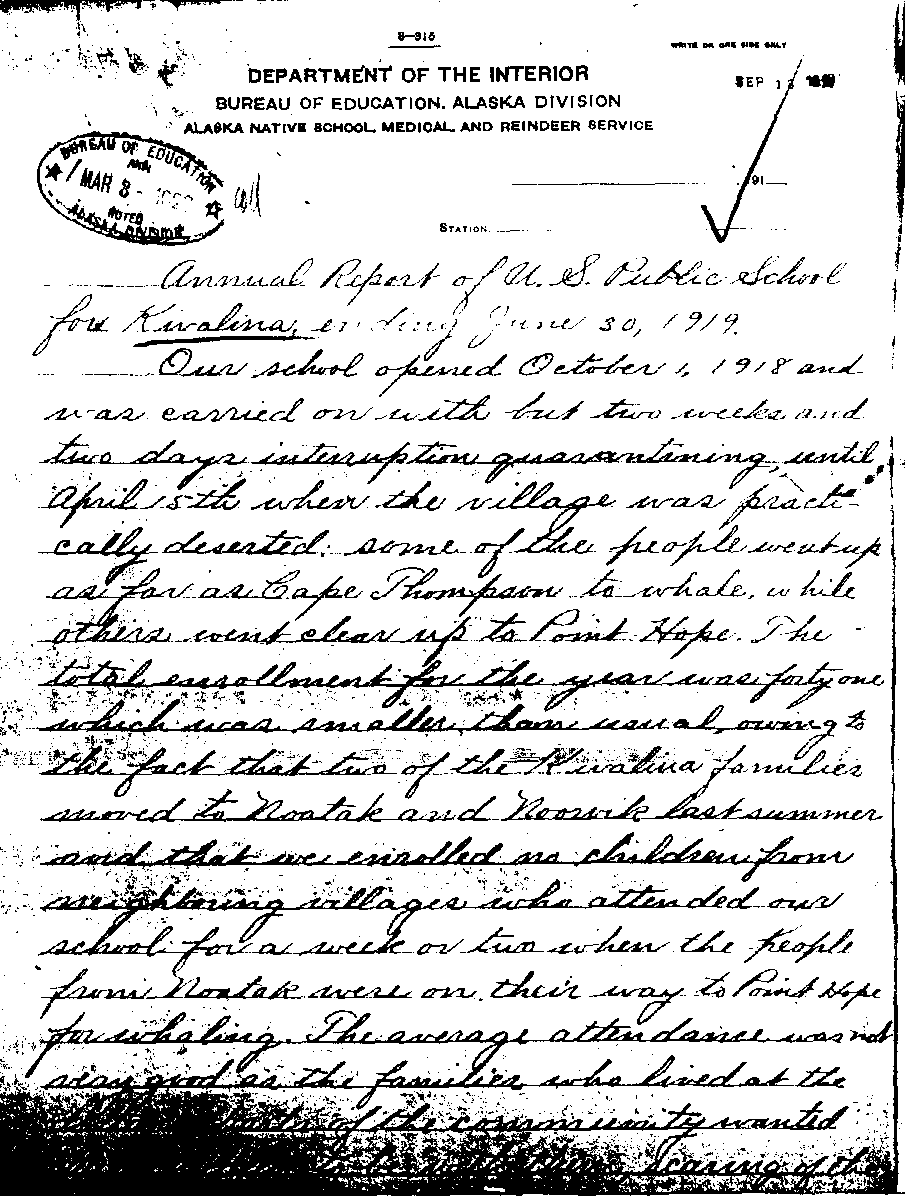 8-315
WRITE ON ONE SIDE ONLY
DEPARTMENT OF THE INTERIOR
BUREAU OF EDUCATION, ALASKA DIVISION
ALASKA NATIVE SCHOOL, MEDICAL, AND REINDEER SERVICE
SEP
BUREAU OF EDUCATION
MAR 8
NOTED
ALASKA DIVISION
191
STATION
Annual Report of U. S. Public School
for Kivalina, ending June 30, 1919.
Our school opened October 1, 1918 and
was carried on with but two weeks and
two days interruption quarantining, until
April 15th when the village was practi-
cally deserted; some of the people went up
as far as Cape Thompson to whale, while
others went clear up to Point Hope. The
total enrollment for the year was forty one
which was smaller than usual, owing to
the fact that two of the Kivalina families
moved to Noatak and Noorvik last summer
and that we enrolled no children from
neighboring villages who attended our
school for a week or two when the people
from Noatak were on their way to Point Hope
for whaling. The average attendance was not
very good as the families who lived at the
of the community wanted
of the